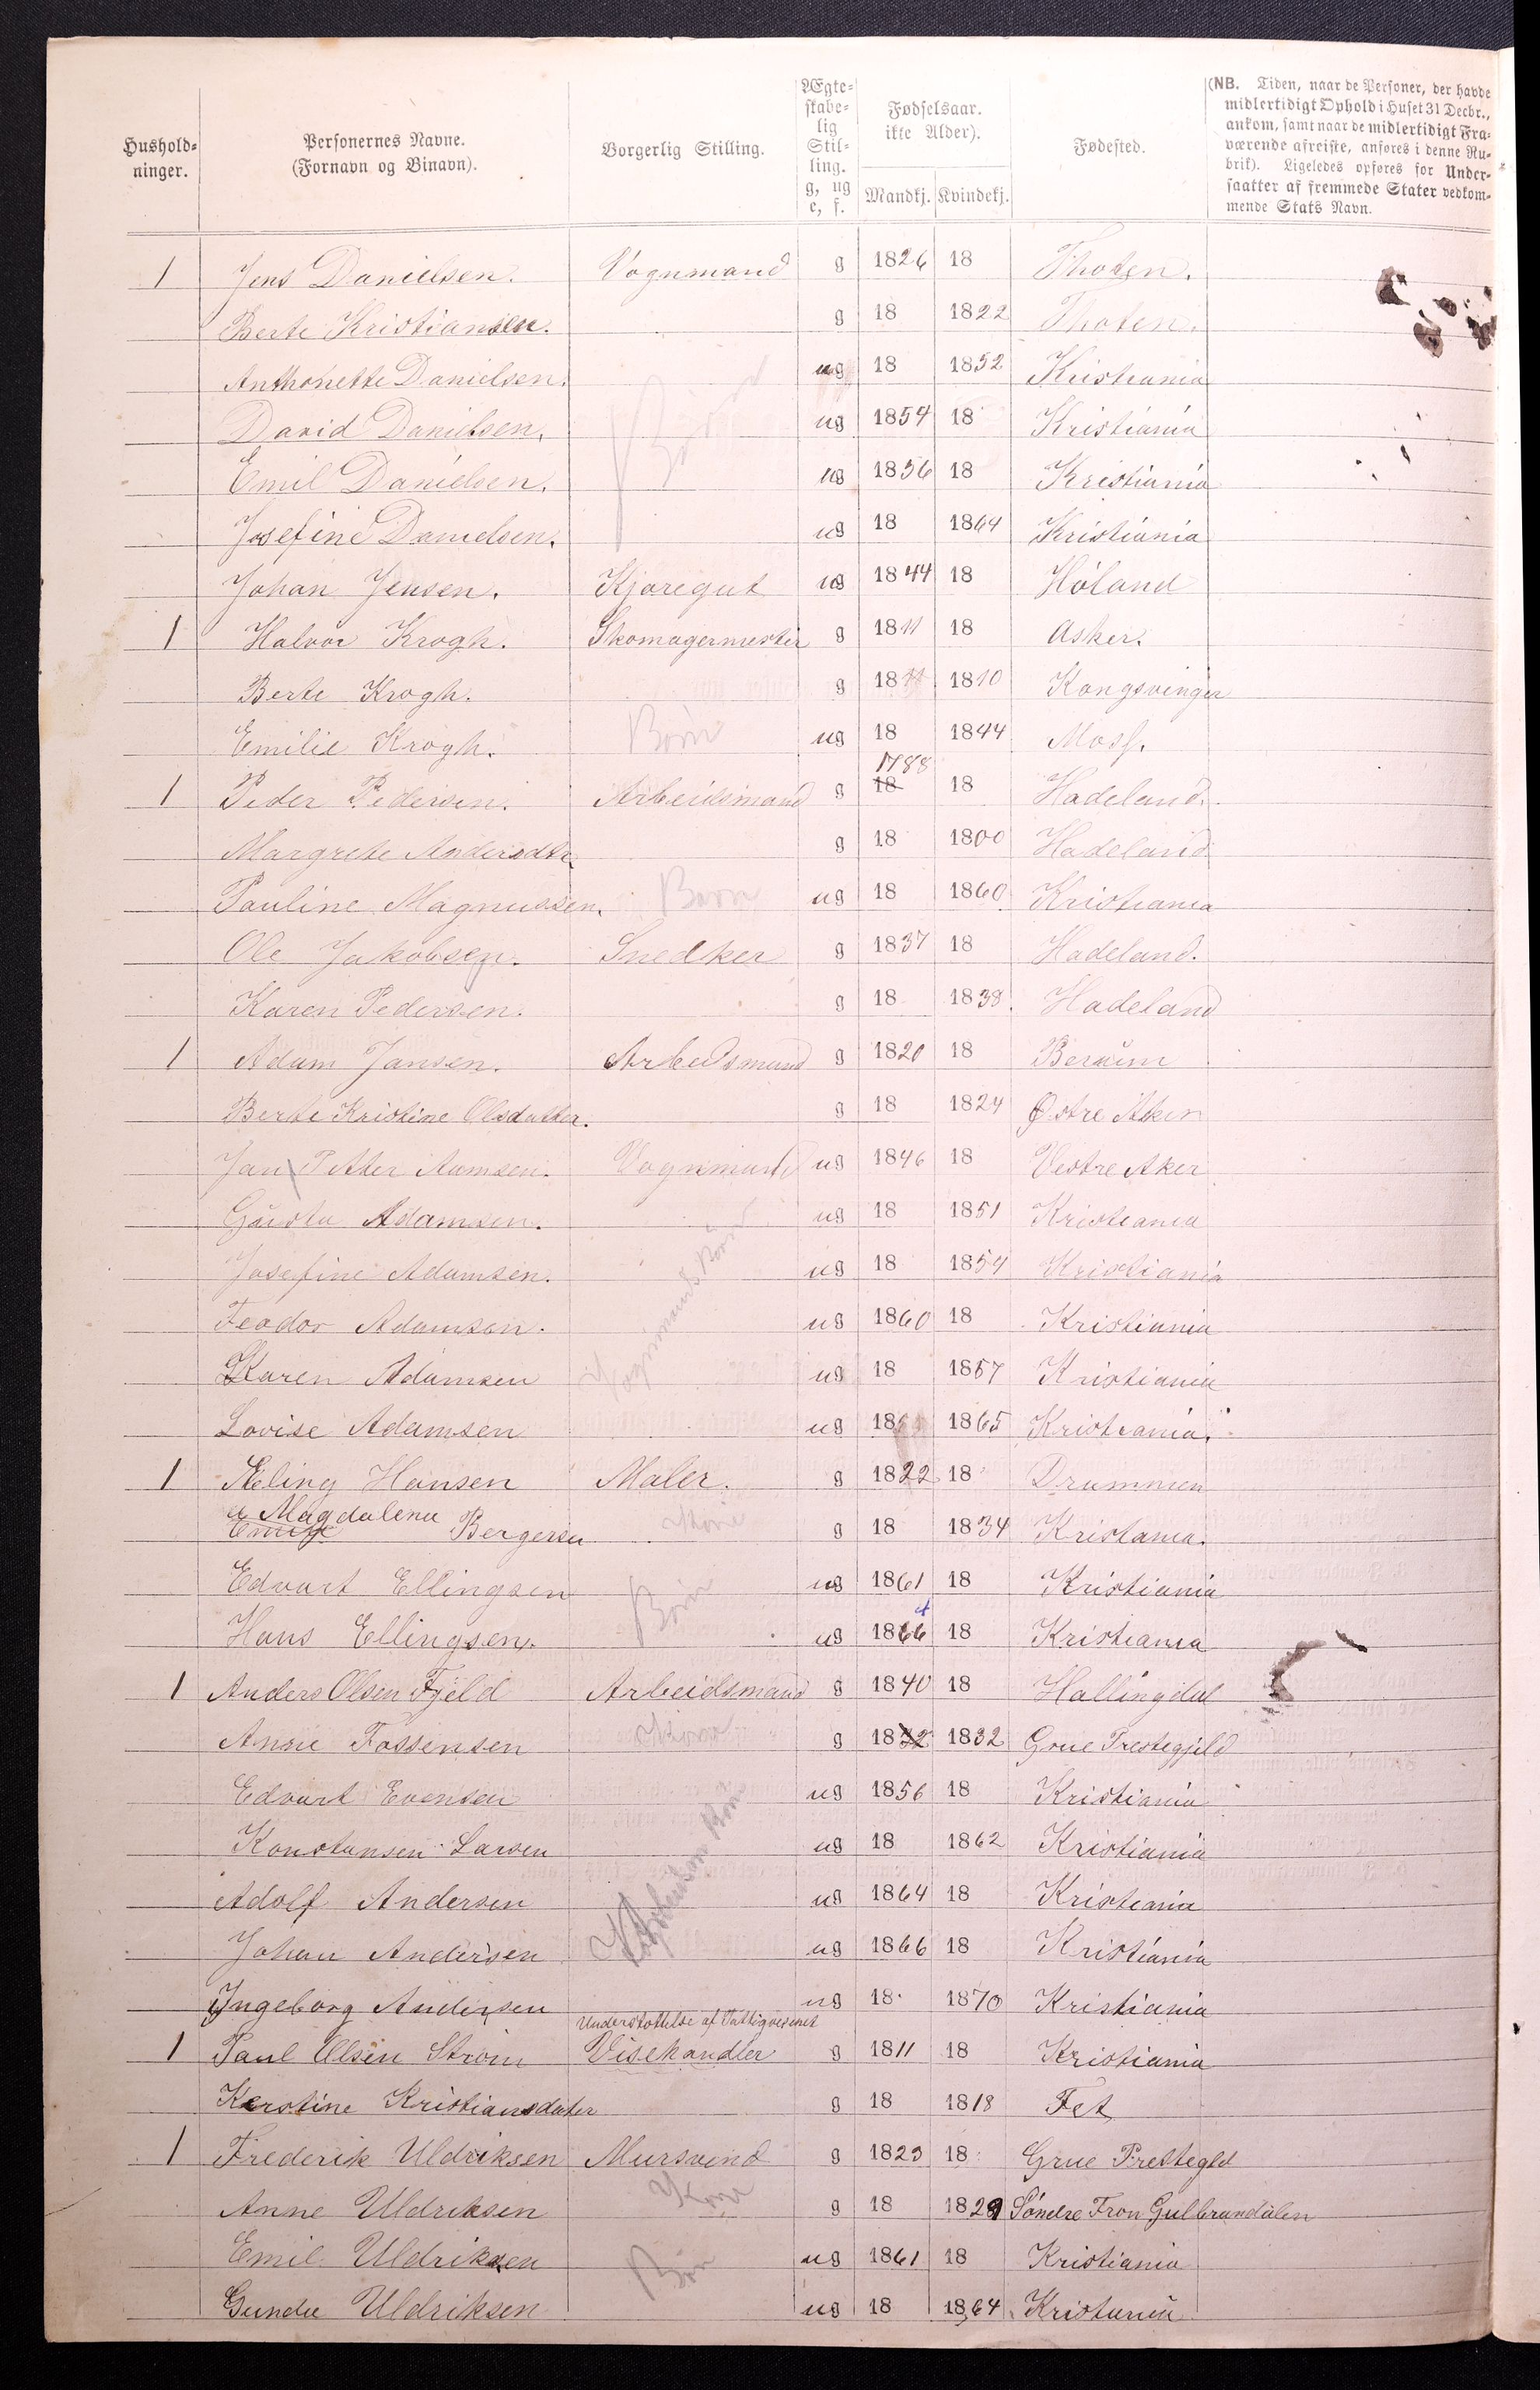 Hushold-
ninger.
Personernes Navne.
(Fornavn og Binavn).
Borgerlig Stilling.
Ægte-
skabe-
lig
Stil-
ling.
g, ug
e, f.
Fødselsaar.
ikke Alder).
Mandkj. Kvindekj.
Fødested.
(NB. Tiden, naar de Personer, der havde
midlertidigt Ophold i Huset 31 Decbr.,
ankom, samt naar de midlertidigt Fra-
værende afreiste, anføres i denne Ru-
brik). Ligeledes opføres for Under-
saatter af fremmede Stater vedkom-
mende Stats Navn.
1 Jens Danielsen. Vognmand g 1826 18 Thoten.
Berte Kristiansen. g 18 1822 Thoten.
Anthonette Danielsen. ug 18 1852 Kristiania
David Danielsen. Børn ug 1854 18 Kristiania
Emil Danielsen. ug 1856 18 Kristiania
Josefine Danielsen. ug 18 1864 Kristiania
Johan Jensen. Kjøregut ug 1844 18 Høland
1 Halvor Krogh. Skomagermester g 1811 18 Asker.
Berte Krogh. g 18 1810 Kongsvinger
Emilie Krogh. Børn ug 18 1844 Moss.
1 Peder Pedersen. Arbeidsmand g 1788 18 18 Hadeland.
Margrete Andersdtr g 18 1800 Hadeland
Pauline Magnussen. Barn ug 18 1860 Kristiania
Ole Jakobsen. Snedker g 1837 18 Hadeland.
Karen Pedersen. g 18 1838. Hadeland
1 Adam Jansen. Arbeidsmand g 1820 18 Berum
Berte Kristine Olsdatter. g 18 1824 Østre Aker
Jan Petter Aamsen. Vognmand ug 1846 18 Vestre Aker
Gusta Adamsen. ug 18 1851 Kristiania
Josefine Adamsen. Vognmands Børn ug 18 1854 Kristiania
Feodor Adamsen. ug 1860 18 Kristiania
Karen Adamsen ug 18 1857 Kristiania
Lovise Adamsen ug 18 1865 Kristiania.
1 Eling Hansen Maler. g 1822 18 Drammen
Magdalena Bergersen Kone g 18 1834 Kristania.
Edvart Ellingsen Børn ug 1861 18 Kristiania
Hans Ellingsen. ug 1866 18 Kristiania
1 Anders Olsen Fjeld Arbeidsmand g 1840 18 Hallingdal
Anne Fossensen Kone g 1832 1832 Grue Prestegjeld
Edvart Evensen ug 1856 18 Kristiania
Konstansen Larsen ug 18 1862 Kristiania
Adolf Andersen Børn ug 1864 18 Kristiania
Johan Andersen ug 1866 18 Kristiania
Ingeborg Andersen ug 18 1870 Kristiania
Understøttelse af Fattigvesenet
1 Paul Olsen Strøm Visehandler g 1811 18 Kristiania
Kerstine Kristiansdater g 18 1818 Fet
1 Frederik Uldriksen Mursvend g 1823 18 Grue Prestegld
Anne Uldriksen Kone g 18 1829 Søndre Fron Gulbrandalen
Emil Uldriksen Børn ug 1861 18 Kristiania
Gunda Uldriksen ug 18 1864 Kristiania